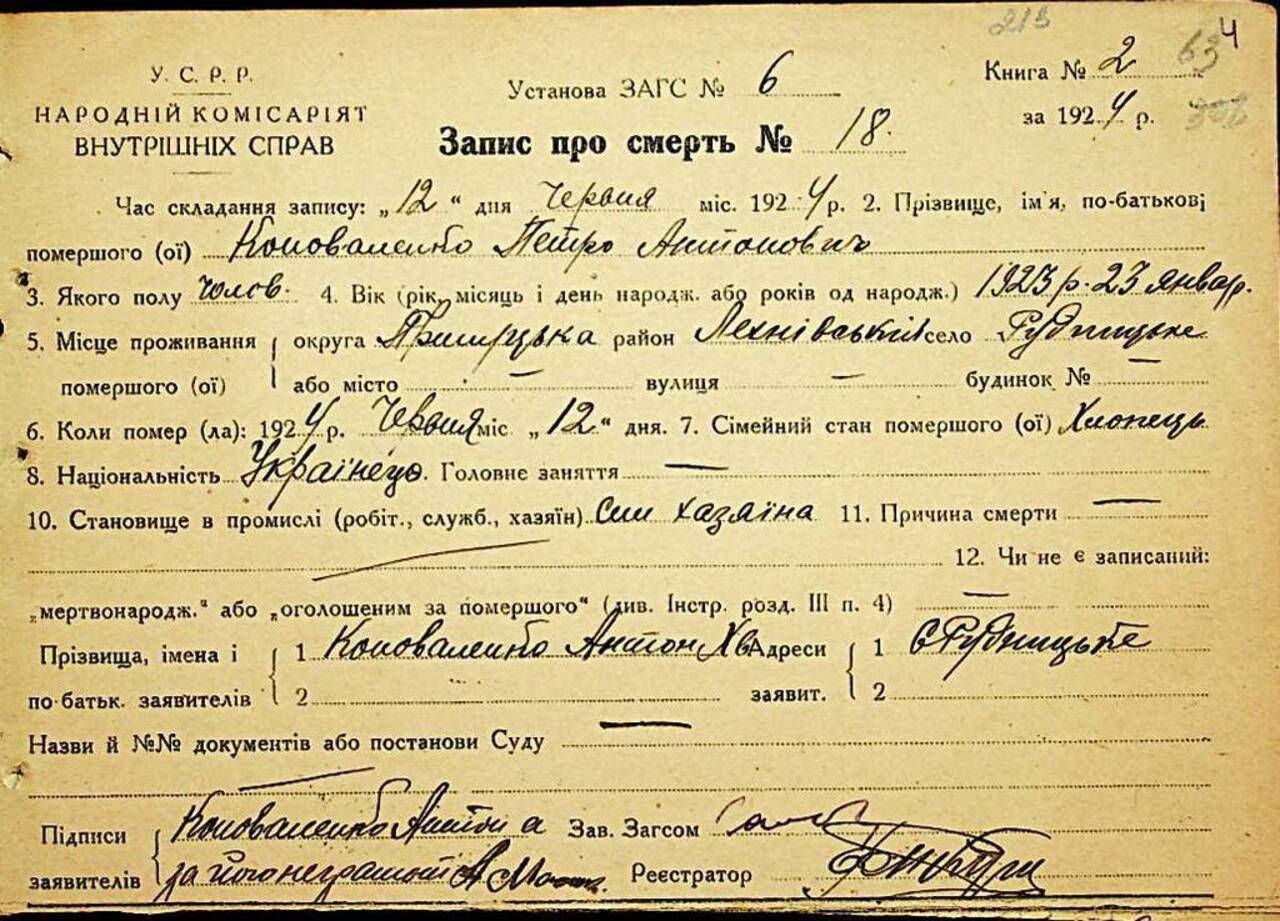 213
4
63
У. С. Р. Р.
НАРОДНІЙ КОМІСАРІЯТ
ВНУТРІШНІХ СПРАВ
Установа ЗАГС № 6
Книга № 2
за 1924 р.
Запис про смерть № 18.
Час складання запису: „12“ дня Червня міс. 1924 р. 2. Прізвище, ім'я, по-батькові
помершого (ої) Коноваленко Петро Антонович
3. Якого полу Чолов. 4. Вік (рік, місяць і день народж. або років од народж.) 1923 р. 23 январ.
5. Місце проживання округа Прилуцька район Яхнівський село Рудницьке
помершого (ої) або місто — вулиця — будинок № —
6. Коли помер (ла): 1924 р. Червня міс „12“ дня. 7. Сімейний стан помершого (ої) Хлопець
8. Національність Українець. Головне заняття —
10. Становище в промислі (робіт., служб., хазяїн) Син хазяіна 11. Причина смерти —
12. Чи не є записаний:
„мертвонародж.“ або „оголошеним за помершого“ (див. Інстр. розд. III п. 4) —
Прізвища, імена і 1 Коноваленко Антон Хв Адреси 1 с Рудницьке
по-батьк. заявителів 2 заявит. 2
Назви й №№ документів або постанови Суду —
Підписи Коноваленко Антон а Зав. Загсом
заявителів за його неграмотн Реєстратор